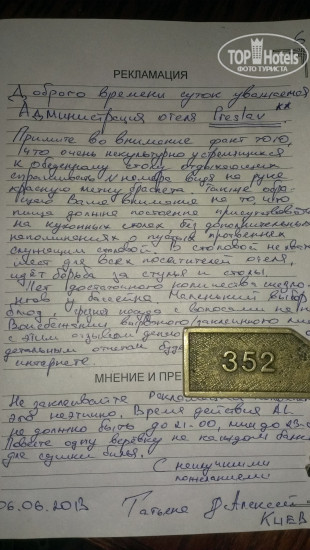 TOPHotels
ФОТО ТУРИСТА
РЕКЛАМАЦИЯ
Доброго времени суток уважаемая
Администрация отеля Preslav
Примите во внимание факт того,
что очень некультурно устремляться
к обеденному столу отдыхающих
спрашивать № номера видя на руке
красную метку браслета. Также обра-
щаю Ваше внимание на то что
пища должна постоянно присутствовать
на кухонных столах, без дополнительных
напоминаний о пустых противнях
служащим столовой. В столовой не хват
мест для всех посетителей отеля,
идёт борьба за стулья и столы.
Нет достаточного количества шезло-
нгов у бассейна. Маленький выбор
блюд, с волосами
с этим отзывом
детальным отчётом буд
интернете.
352
МНЕНИЕ И ПРЕ
Не заклеивайте
это неэтично. Время действия AL
не должно быть до 21-00, min до 23-0
Повесте одну верёвку на каждом балк
для сушки белья.
С наилучшими
пожеланиями
06.06.2013 Татьяна Алексей
Киев